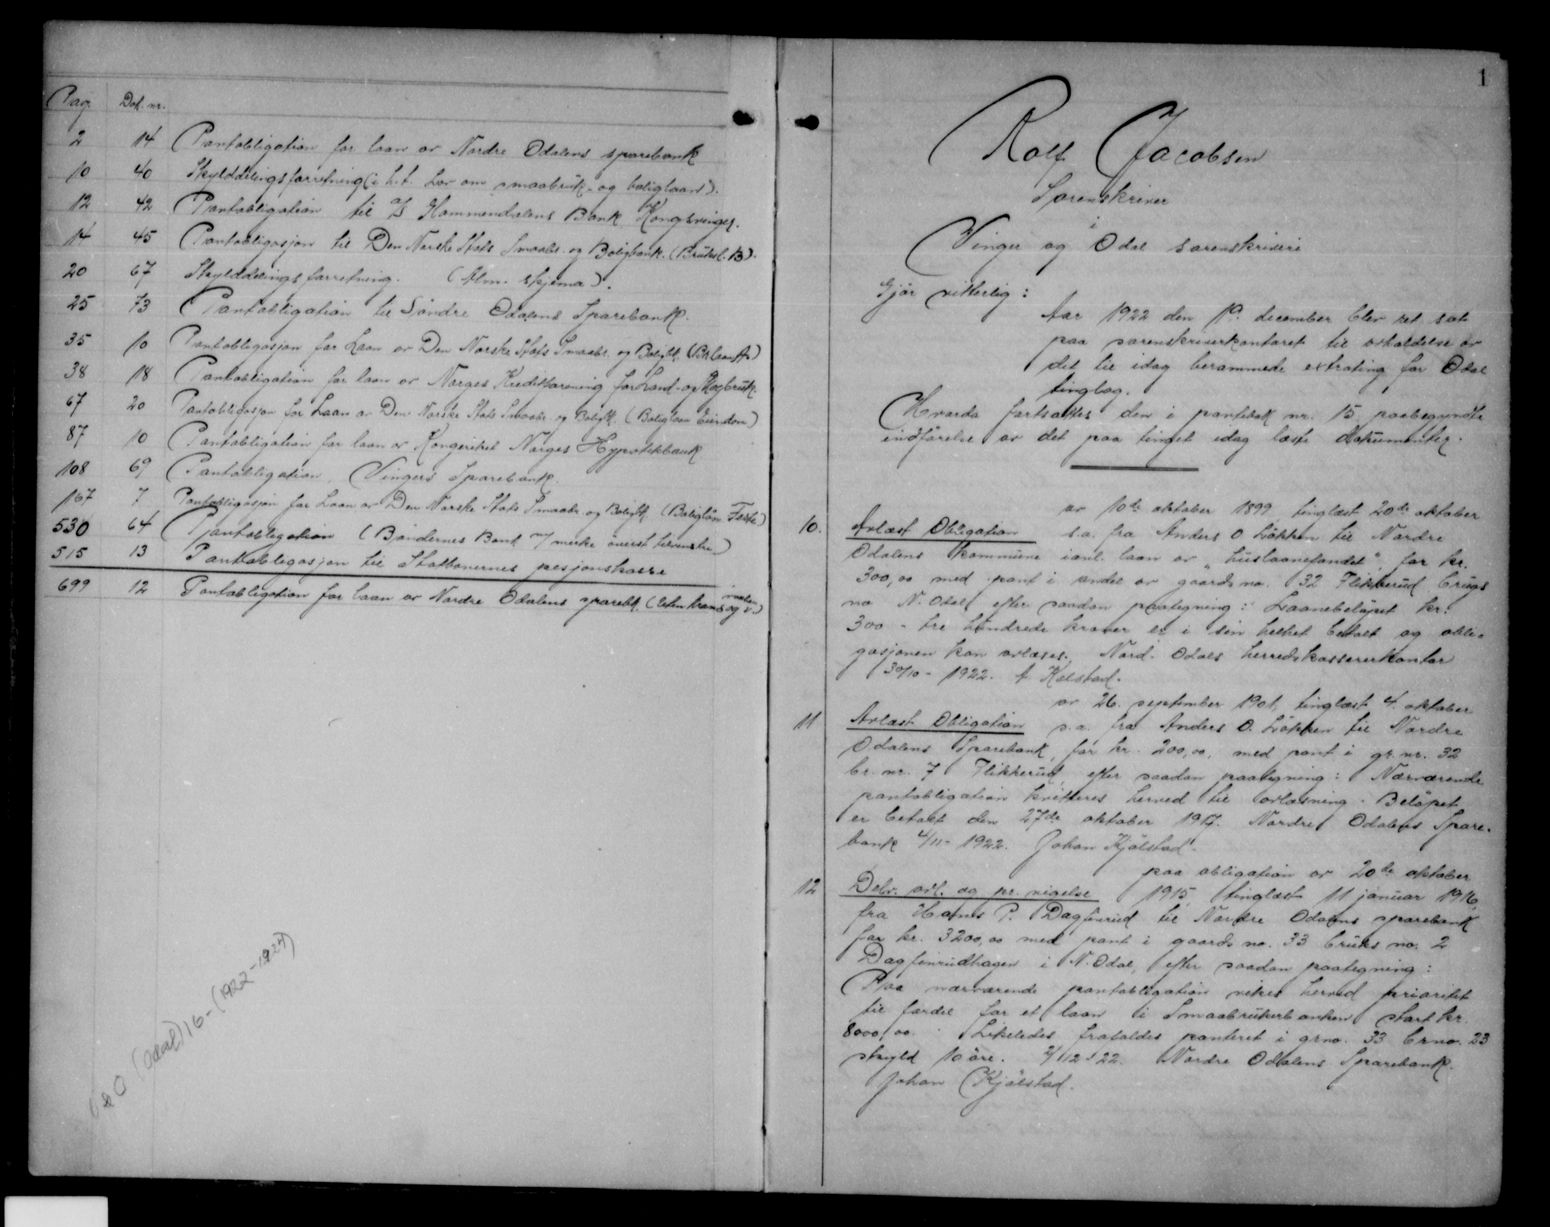 Pag. Dok. nr.
2 14 Pantobligation for laan av Nordre Odalens sparebank
10 40 Skylddelingsforretning (i h.t. Lov om smaabruk og boliglaan).
12 42 Pantobligation til A/S Kommendalens Bank Kongsvinger.
14 45 Pantobligasjon til Den Norske Stats Smaabr. og Boligbank. (Bruksl. B).
20 67 Skylddelingsforretning. (Alm. skjema).
25 73 Pantobligation til Söndre Odalens Sparebank.
35 10 Pantobligasjon for Laan av Den Norske Stats Smaabr. og Boligbk. (Br.laan A)
38 18 Pantobligation for laan av Norges Kreditforening for Land- og Skogbruk.
67 20 Pantobligasjon for Laan av Den Norske Stats Smaabr. og Boligbk. (Boliglaan Eiendom)
87 10 Pantobligation for laan av Kongeriket Norges Hypotekbank
108 69 Pantobligation, Vingers Sparebank.
167 7 Pantobligasjon for Laan av Den Norske Stats Smaabr. og Boligbk. (Boliglån Feste)
530 64 Pantobligation (Böndernes Bank merke överst tilvenstre)
515 13 Pantobligasjon til Statbanernes pesjonskasse
699 12 Pantobligation for laan av Nordre Odalens sparebk. (uten og v.)
(Odal) 16 - (1922-1924)
1
Rolf Jacobsen
Sorenskriver
i
Vinger og Odal sorenskriveri
Gjör vitterlig:
Aar 1922 den 19. december blev ret sat
paa sorenskriverkontoret til avholdelse av
det til idag berammede extrating for Odal
tinglag.
Hvorda fortsattes den i pantebok nr. 15 paabegyndte
indförelse av det paa tinget idag læste dokumenter.
av 10de oktober 1899, tinglæst 20de oktober
10. Avlæst Obligation s.a. fra Anders O. Lökken til Nordre
Odalens kommune ianl. laan av "huslaanefondet", for kr.
300,00 med pant i andel av gaards no. 32 Flikkerud brugs
no N. Odal efter saadan paategning: Laanebelöpet kr.
300 - tre hundrede kroner er i sin helhet betalt og obli-
gasjonen kan avlæses. Nord-Odals herredskassererkontor
30/10 - 1922. A Kelstad.
av 26. september 1901, tinglæst 4. oktober
11 Avlæst Obligation s.a. fra Anders O. Lökken til Nordre
Odalens Sparebank, for kr. 200,00, med pant i gr. nr. 32
br. nr. 7 Flikkerud, efter saadan paategning: Nærværende
pantobligation kvitteres herved til avlæsning. Belöpet
er betalt den 27de oktober 1917. Nordre Odalens Spare-
bank 4/11- 1922. Johan Kjölstad.
paa obligation av 20de oktober
12 Delv. avl. og pr. vigelse 1915, tinglæst 11 januar 1916,
fra Hans P. Dagfinrud til Nordre Odalens sparebank
for kr. 3200,00 med pant i gaards no. 33 bruks no. 2
Dagfinrudhagen i N. Odal, efter saadan paategning:
Paa nærværende pantobligation vikes herved prioritet
til fordel for et laan i Smaabrukerbanken stort kr.
8000,00. Likeledes frafaldes panteret i grno. 33 brno. 23
skyld 10 öre. 2/12 1922. Nordre Odalens Sparebank.
Johan Kjölstad.